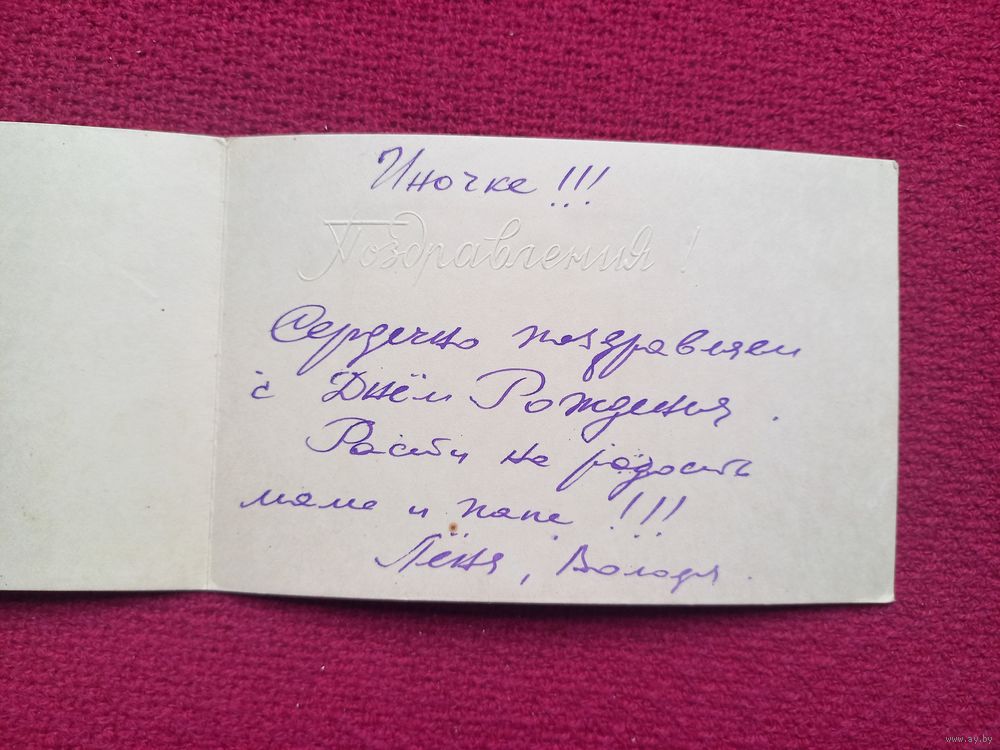 Иночке!!!
Поздравления!
Сердечно поздравляем
с Днём Рождения.
Расти на радость
маме и папе!!!
Лёня, Володя.
www.ay.by